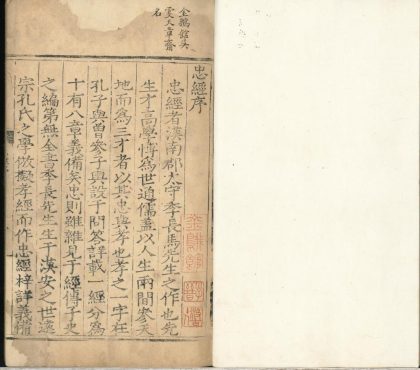 忠經序
忠經者漢南郡太守季長馬先生之作也先
生才高學博為世通儒蓋以人生兩間參天
地而為三才者以其忠與孝也孝之一字在
孔子與曾參子與設于問答詳載一經分為
十有八章義備矣忠則雖雜見于經傳子史
之編第無全書季長先生生于漢安之世遠
宗孔氏之學倣擬孝經而作忠經梓詳義